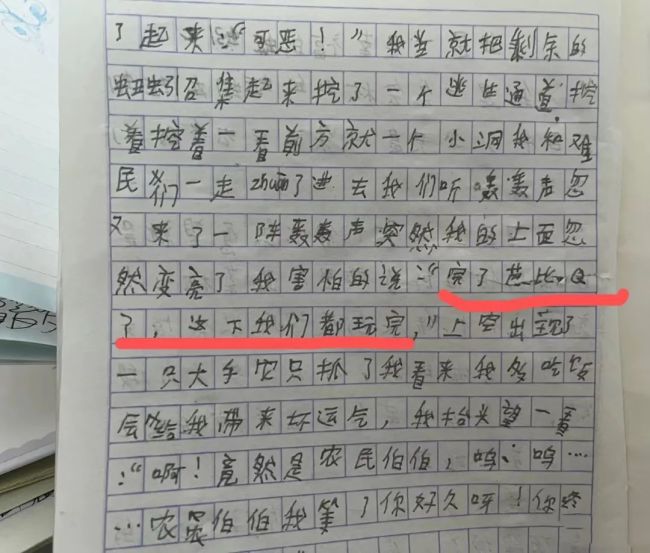 了起来："可恶！"我堂就把剩余的
蚯蚓召集起来挖了一个逃生通道，挖
着挖着一看前方就一个小洞我和难
民们一走zhuan了进去我们听轰轰声忽
又来了一阵轰轰声突然我的上面忽
然变亮了我害怕的说："完了芭比Q
了，这下我们都玩完，"上空出现了
一只大手它只抓了我看来我多吃饭
会给我带来坏运气，我抬头望一看
："啊！竟然是农民伯伯，呜、呜…
…农民伯伯我等了你好久呀！你终